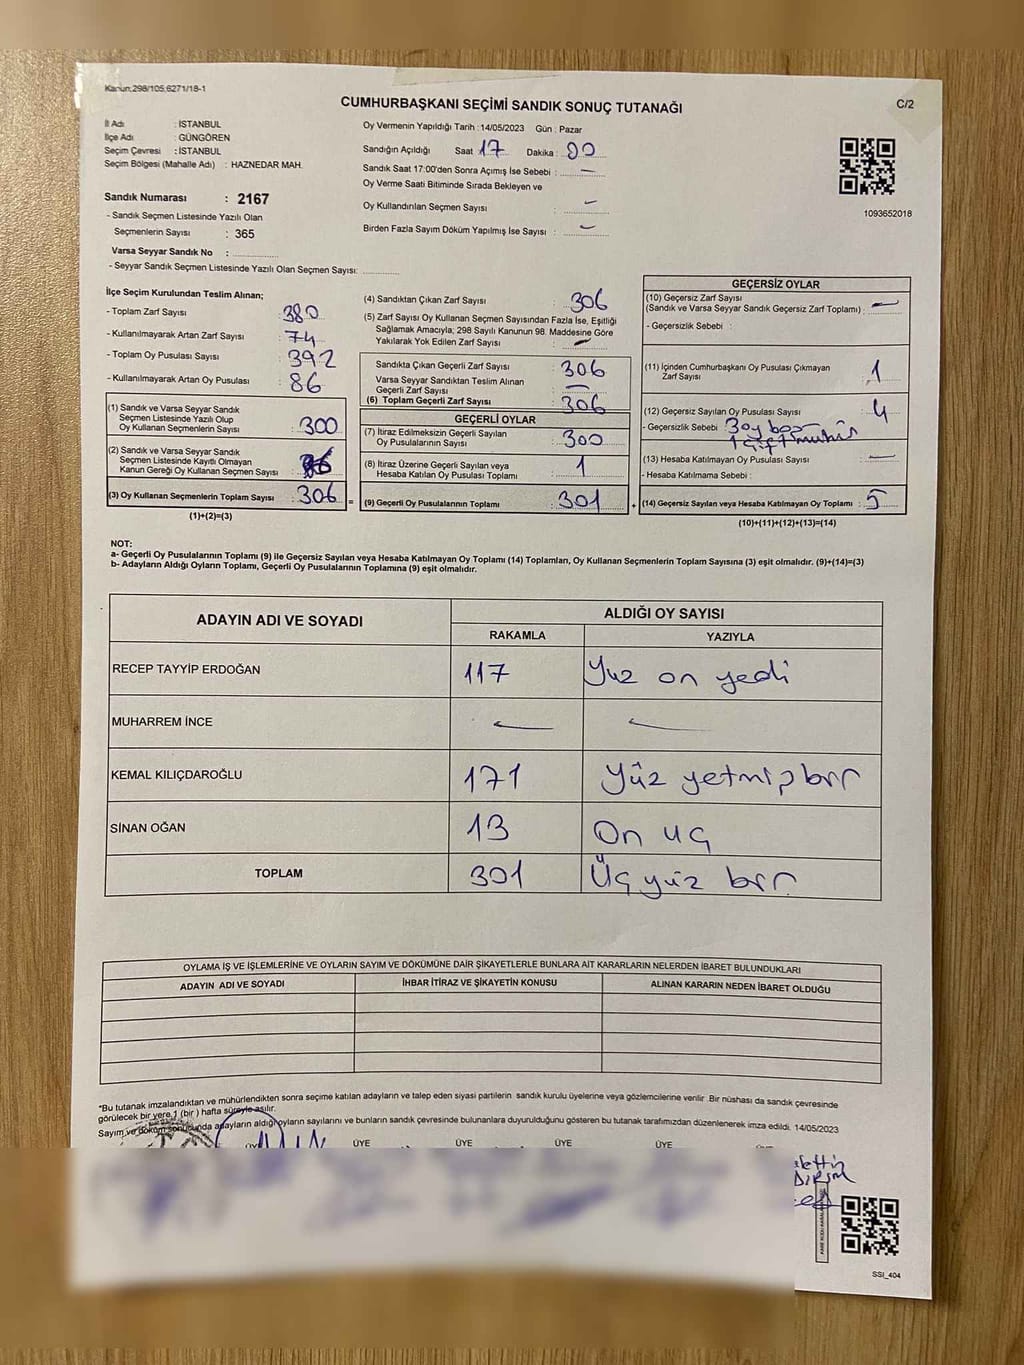 Kanun:298/105;6271/18-1
CUMHURBAŞKANI SEÇİMİ SANDIK SONUÇ TUTANAĞI
C/2
İl Adı : İSTANBUL
İlçe Adı : GÜNGÖREN
Seçim Çevresi : İSTANBUL
Seçim Bölgesi (Mahalle Adı) : HAZNEDAR MAH.
Sandık Numarası : 2167
- Sandık Seçmen Listesinde Yazılı Olan
Seçmenlerin Sayısı : 365
Varsa Seyyar Sandık No :
- Seyyar Sandık Seçmen Listesinde Yazılı Olan Seçmen Sayısı:
Oy Vermenin Yapıldığı Tarih : 14/05/2023 Gün : Pazar
Sandığın Açıldığı Saat 17 Dakika : 00
Sandık Saat 17:00'den Sonra Açımış İse Sebebi : —
Oy Verme Saati Bitiminde Sırada Bekleyen ve
Oy Kullandırılan Seçmen Sayısı : —
Birden Fazla Sayım Döküm Yapılmış İse Sayısı : —
1093652018
İlçe Seçim Kurulundan Teslim Alınan;
- Toplam Zarf Sayısı : 380
- Kullanılmayarak Artan Zarf Sayısı : 74
- Toplam Oy Pusulası Sayısı : 392
- Kullanılmayarak Artan Oy Pusulası : 86
(1) Sandık ve Varsa Seyyar Sandık
Seçmen Listesinde Yazılı Olup
Oy Kullanan Seçmenlerin Sayısı : 300
(2) Sandık ve Varsa Seyyar Sandık
Seçmen Listesinde Kayıtlı Olmayan
Kanun Gereği Oy Kullanan Seçmen Sayısı :
(3) Oy Kullanan Seçmenlerin Toplam Sayısı : 306 =
(1)+(2)=(3)
(4) Sandıktan Çıkan Zarf Sayısı : 306
(5) Zarf Sayısı Oy Kullanan Seçmen Sayısından Fazla İse, Eşitliği
Sağlamak Amacıyla; 298 Sayılı Kanunun 98. Maddesine Göre
Yakılarak Yok Edilen Zarf Sayısı : —
Sandıkta Çıkan Geçerli Zarf Sayısı : 306
Varsa Seyyar Sandıktan Teslim Alınan
Geçerli Zarf Sayısı : —
(6) Toplam Geçerli Zarf Sayısı : 306
GEÇERLİ OYLAR
(7) İtiraz Edilmeksizin Geçerli Sayılan
Oy Pusulalarının Sayısı : 300
(8) İtiraz Üzerine Geçerli Sayılan veya
Hesaba Katılan Oy Pusulası Toplamı : 1
(9) Geçerli Oy Pusulalarının Toplamı : 301 +
GEÇERSİZ OYLAR
(10) Geçersiz Zarf Sayısı
(Sandık ve Varsa Seyyar Sandık Geçersiz Zarf Toplamı) : —
- Geçersizlik Sebebi :
(11) İçinden Cumhurbaşkanı Oy Pusulası Çıkmayan
Zarf Sayısı : 1
(12) Geçersiz Sayılan Oy Pusulası Sayısı : 4
- Geçersizlik Sebebi 3 oy boş
1 çift mühür
(13) Hesaba Katılmayan Oy Pusulası Sayısı : —
- Hesaba Katılmama Sebebi :
(14) Geçersiz Sayılan veya Hesaba Katılmayan Oy Toplamı : 5
(10)+(11)+(12)+(13)=(14)
NOT:
a- Geçerli Oy Pusulalarının Toplamı (9) ile Geçersiz Sayılan veya Hesaba Katılmayan Oy Toplamı (14) Toplamları, Oy Kullanan Seçmenlerin Toplam Sayısına (3) eşit olmalıdır. (9)+(14)=(3)
b- Adayların Aldığı Oyların Toplamı, Geçerli Oy Pusulalarının Toplamına (9) eşit olmalıdır.
ADAYIN ADI VE SOYADI ALDIĞI OY SAYISI
RAKAMLA YAZIYLA
RECEP TAYYİP ERDOĞAN 117 Yuz on yedi
MUHARREM İNCE — —
KEMAL KILIÇDAROĞLU 171 Yüz yetmiş bir
SİNAN OĞAN 13 On uç
TOPLAM 301 Üç yüz bir
OYLAMA İŞ VE İŞLEMLERİNE VE OYLARIN SAYIM VE DÖKÜMÜNE DAİR ŞİKAYETLERLE BUNLARA AİT KARARLARIN NELERDEN İBARET BULUNDUKLARI
ADAYIN ADI VE SOYADI İHBAR İTİRAZ VE ŞİKAYETİN KONUSU ALINAN KARARIN NEDEN İBARET OLDUĞU
*Bu tutanak imzalandıktan ve mühürlendikten sonra seçime katılan adayların ve talep eden siyasi partilerin sandık kurulu üyelerine veya gözlemcilerine verilir. Bir nüshası da sandık çevresinde
görülecek bir yere 1 (bir) hafta süreyle asılır.
Sayım ve döküm sonucunda adayların aldığı oyların sayılarını ve bunların sandık çevresinde bulunanlara duyurulduğunu gösteren bu tutanak tarafımızdan düzenlenerek imza edildi. 14/05/2023
ÜYE ÜYE ÜYE ÜYE
SSI_404